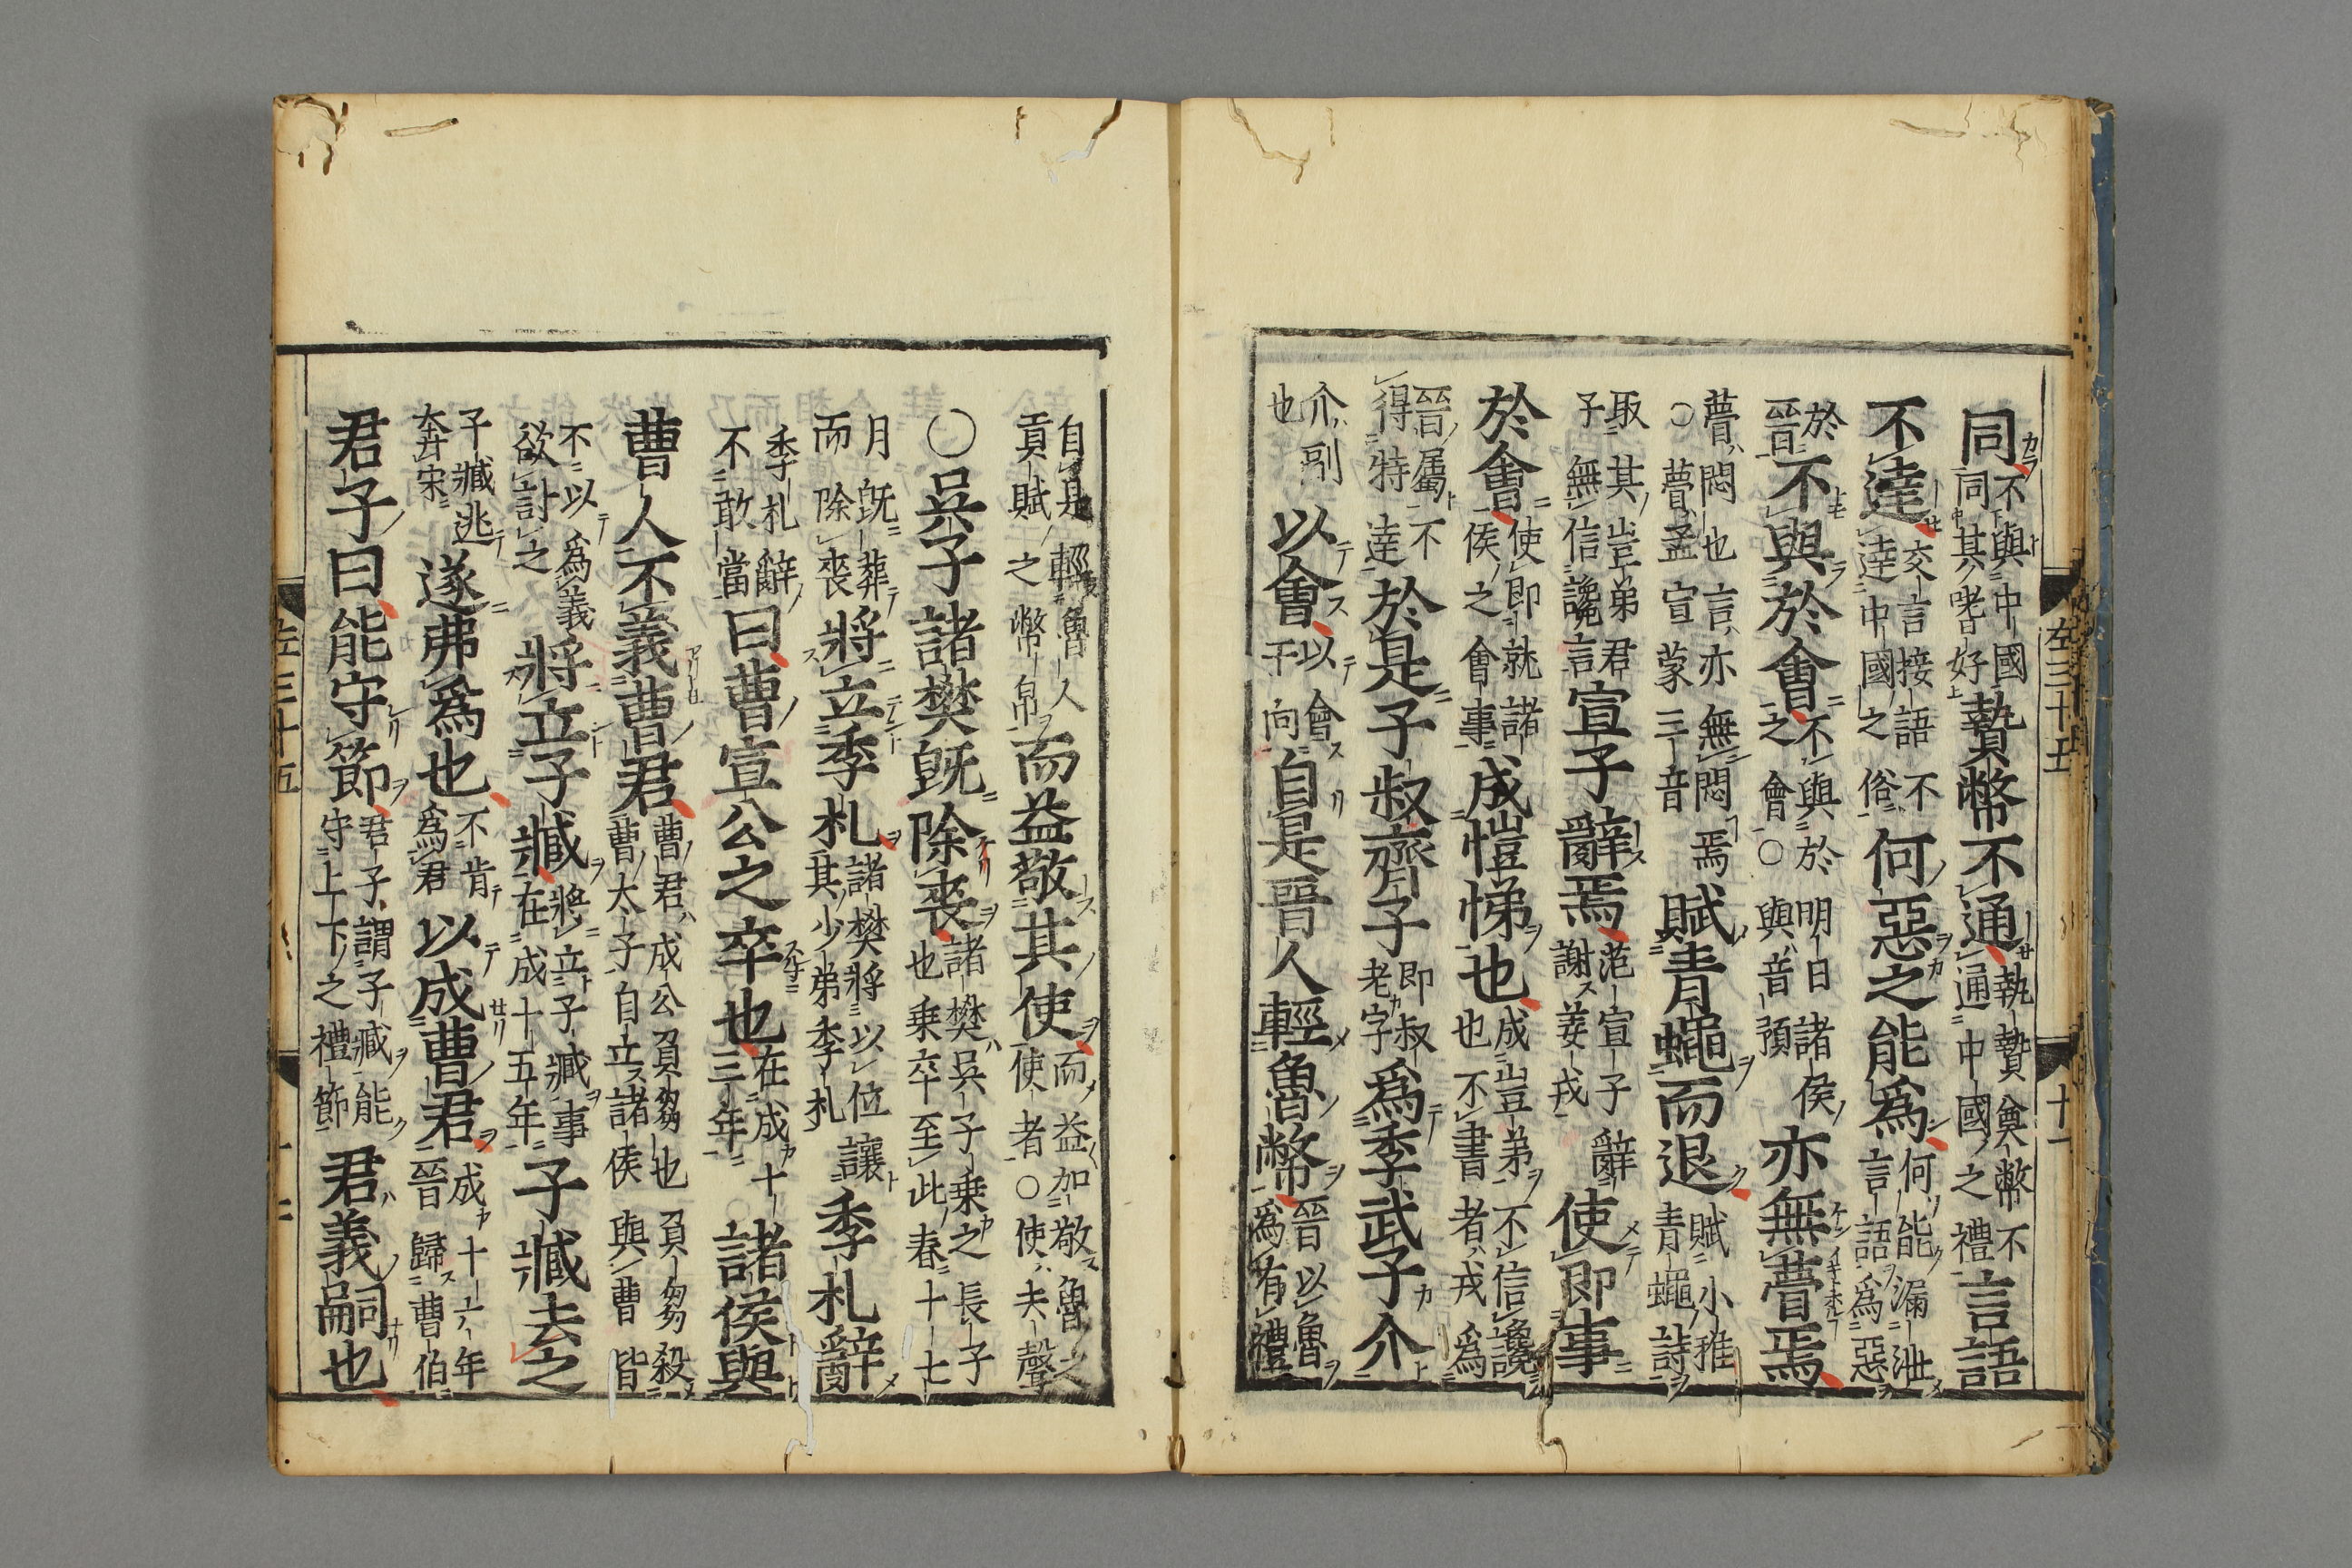 左三十五　十一
同不與中國同其嗜好贄幣不通執贄奠幣不通中國之禮言語
不達交言接語不達中國之俗何惡之能為何能漏泄言語為惡
於晉不與於會不與於明日諸侯之會○與音預亦無瞢焉
瞢悶也言亦無悶焉○瞢孟宣蒙三音賦青蠅而退賦小雅青蠅詩
取其豈弟君子無信讒言宣子辭焉范宣子辭謝姜戎使即事
於會使即就諸侯之會事成愷悌也成豈弟不信讒也不書者戎為
晉屬不得特達於是子叔齊子即叔老字為季武子介
介副也以會以會于向自是晉人輕魯幣晉以魯為有禮
自是輕魯人貢賦之幣帛而益敬其使而益加敬魯之使者○使夫聲
○吳子諸樊既除喪諸樊吳子乘之長子也乘卒至此春十七
月既葬而除喪將立季札諸樊將以位讓其少弟季札季札辭
季札辭不敢當曰曹宣公之卒也在成十三年諸侯與
曹人不義曹君曹君成公負芻也負芻殺曹太子自立諸侯與曹皆
不以為義欲討之將立子臧將立子臧事在成十五年子臧去之
子臧逃奔宋遂弗為也不肯為君以成曹君成十六年晉歸曹伯
君子曰能守節君子謂子臧能守上下之禮節君義嗣也
左三十五